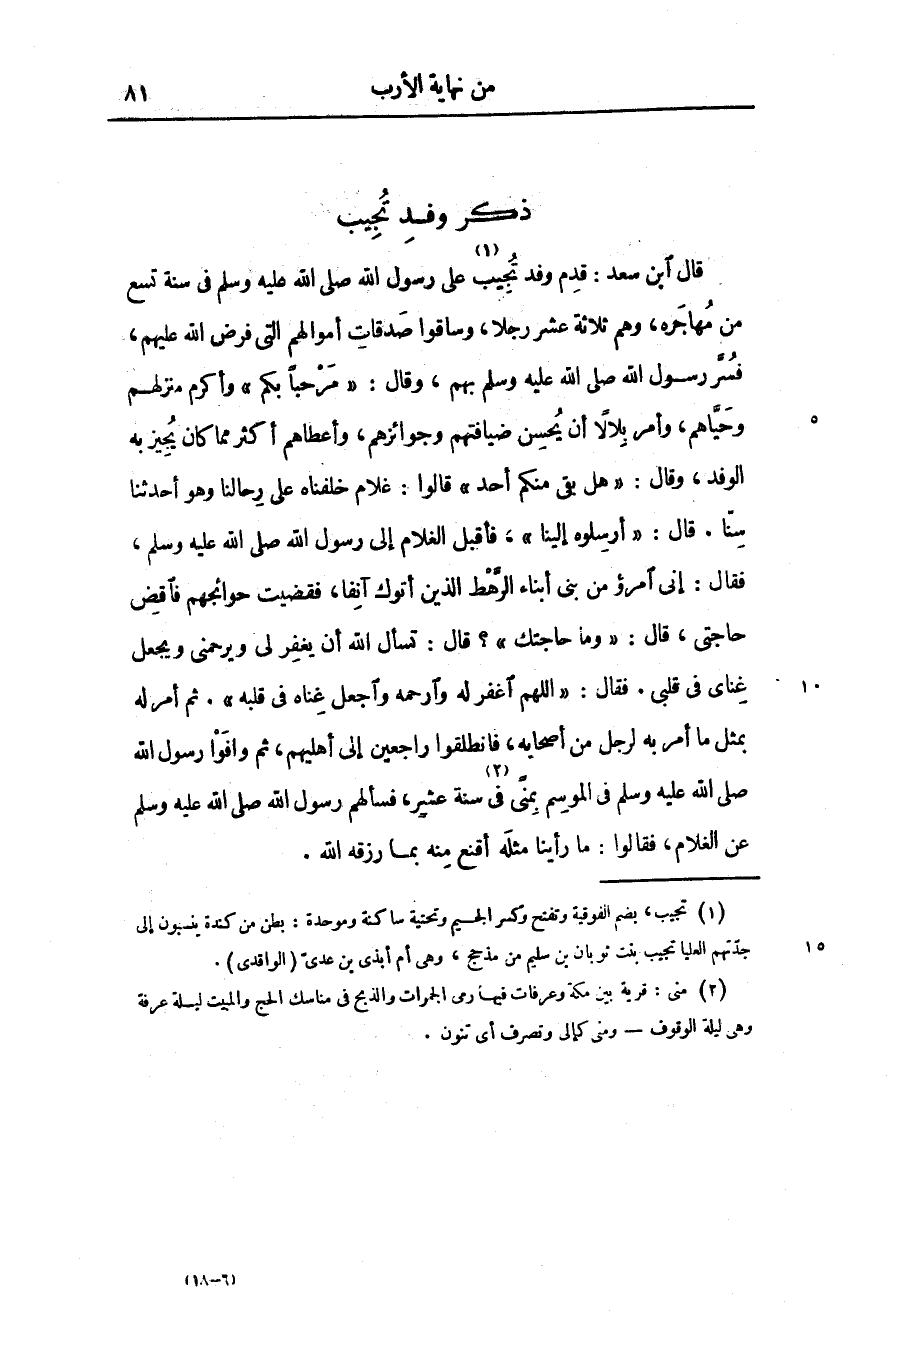 من نهاية الأرب ٨١
ذكر وفدِ تُجِيب
قال ٱبن سعد : قدِم وفد تُجِيب (١) على رسول الله صلى الله عليه وسلم فى سنة تسع
من مُهاجَره، وهم ثلاثة عشر رجلا، وساقوا صَدقاتِ أموالهم التى فرض الله عليهم،
فسُرَّ رسول الله صلى الله عليه وسلم بهم ، وقال : « مَرْحباً بكم » وأكرم منزلهم
وحَيَّاهم، وأمر بِلالًا أن يُحسِن ضيافتهم وجوائزهم، وأعطاهم أكثر مما كان يُجِيز به ٥
الوفد ، وقال : « هل بقى منكم أحد » قالوا : غلام خلفناه على رِحالنا وهو أحدثنا
سِنّا . قال : « أرسِلوه إلينا » ، فأقبل الغلام إلى رسول الله صلى الله عليه وسلم ،
فقال : إنى ٱمرؤ من بنى أبناء الرَّهْط الذين أتوك آنِفا ، فقضيت حوائجهم فٱقضِ
حاجتى ، قال : « وما حاجتك » ؟ قال : تسأل الله أن يغفِر لى ويرحمنى ويجعل
غِناى فى قلبى . فقال : « اللهم ٱغفر له وٱرحمه وٱجعل غِناه فى قلبه » . ثم أمر له ١٠
بمثل ما أمر به لرجل من أصحابه، فانطلقوا راجعين إلى أهليهم، ثم وافَوْا رسول الله
صلى الله عليه وسلم فى الموسِم بِمنًى (٢) فى سنة عشرٍ، فسألهم رسول الله صلى الله عليه وسلم
عن الغلام، فقالوا : ما رأينا مثلَه أقنع مِنه بما رزقه الله .
(١) تجيب، بضم الفوقية وتفتح وكسر الجيم وتحتية ساكنة وموحدة : بطن من كندة ينسبون إلى
جدّتهم العليا تجيب بنت ثوبان بن سليم من مذحج ، وهى أم أبذى بن عدىّ (الواقدى) . ١٥
(٢) منى : قرية بين مكة وعرفات فيها رمى الجمرات والذبح فى مناسك الحج والمبيت ليلة عرفة
وهى ليلة الوقوف — ومنى كإلى وتصرف أى تنون .
(٦-١٨)